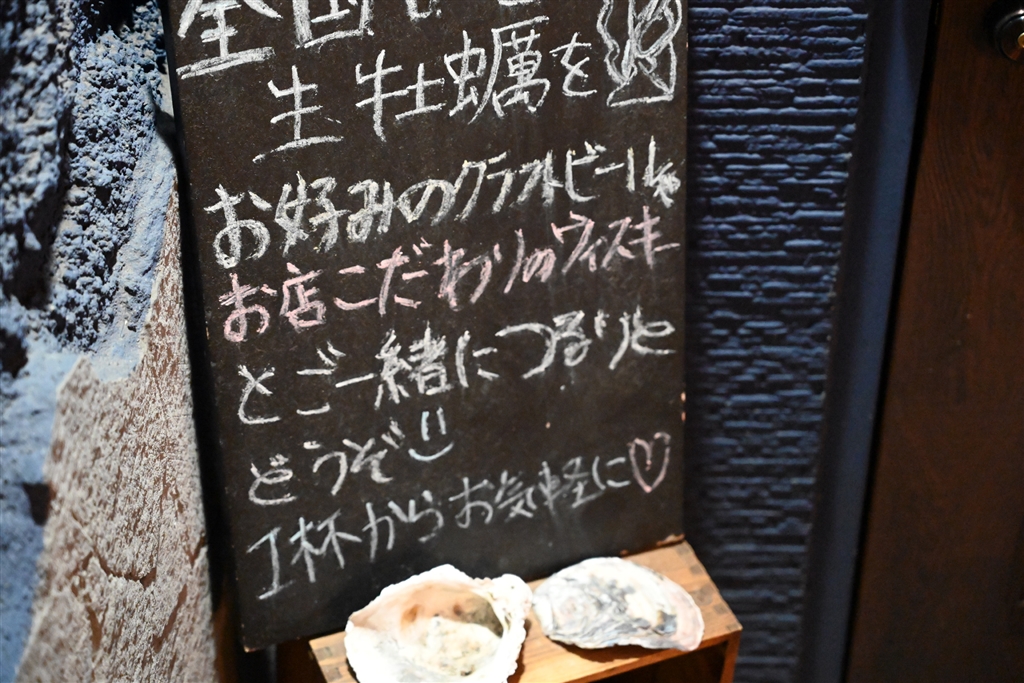 全国
生牡蠣を
お好みのクラフトビールや
お店こだわりのウィスキー
とご一緒につるりと
どうぞ
1杯からお気軽に♡